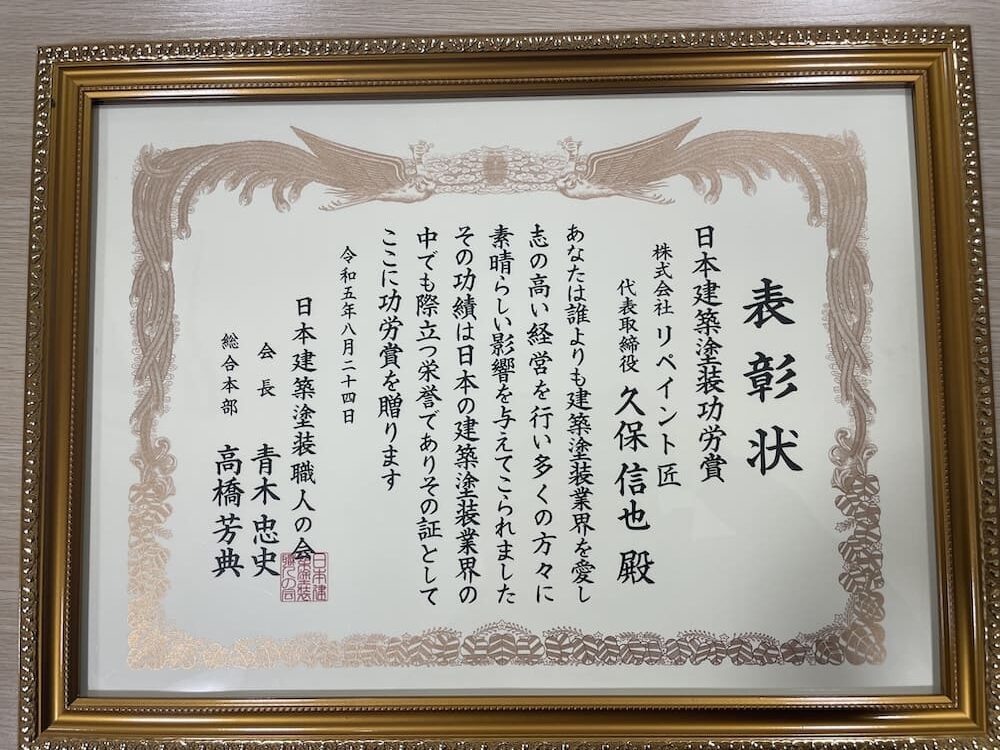 表彰状
日本建築塗装功労賞
株式会社 リペイント匠
代表取締役 久保信也 殿
あなたは誰よりも建築塗装業界を愛し
志の高い経営を行い多くの方々に
素晴らしい影響を与えてこられました
その功績は日本の建築塗装業界の
中でも際立つ栄誉でありその証として
ここに功労賞を贈ります
令和五年八月二十四日
日本建築塗装職人の会
会長 青木忠史
総合本部 高橋芳典
日本建
築塗装
職人の会